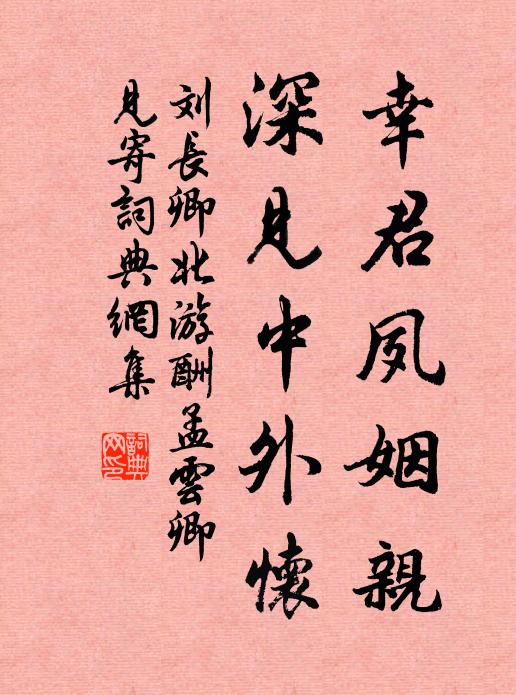 幸君夙姻親
深見中外懷
刘長卿北游酬孟雲卿
見寄詞典網集
詞典
网印